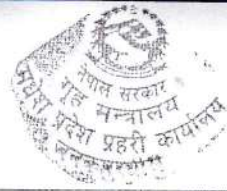 नेपाल सरकार
गृह मन्त्रालय
मधेश प्रदेश प्रहरी कार्यालय